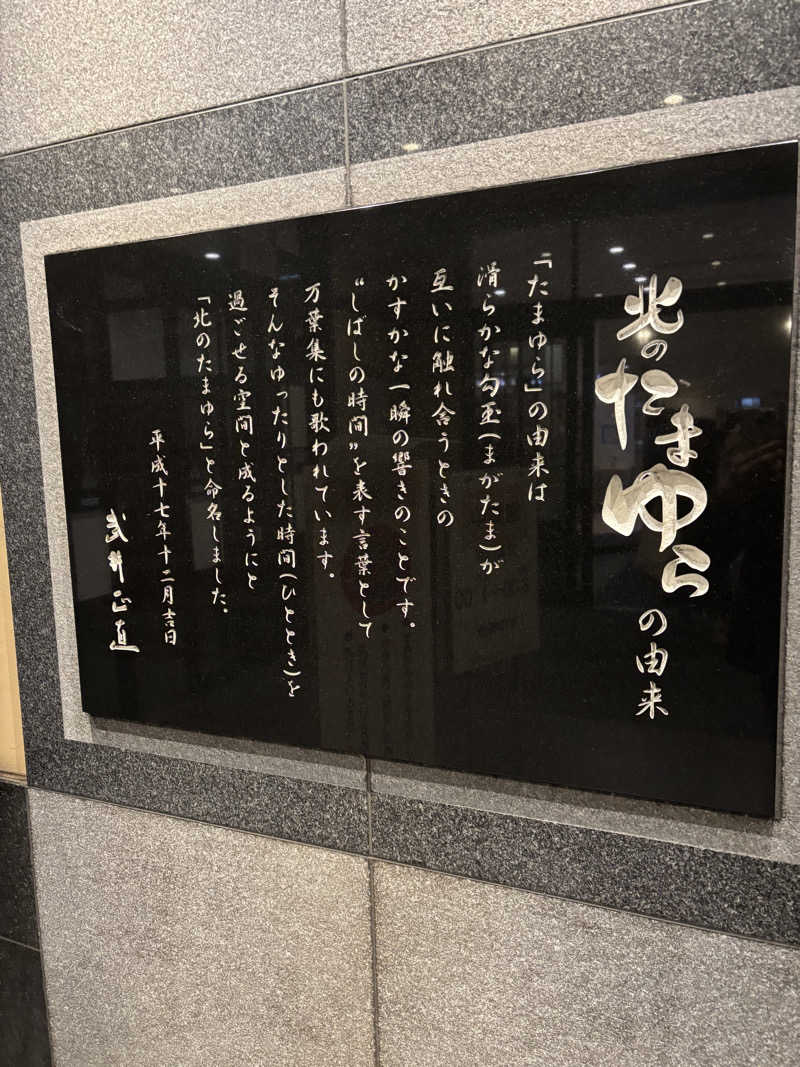 北のたまゆらの由来
「たまゆら」の由来は
滑らかな勾玉(まがたま)が
互いに触れ合うときの
かすかな一瞬の響きのことです。
“しばしの時間”を表す言葉として
万葉集にも歌われています。
そんなゆったりとした時間(ひととき)を
過ごせる空間と成るようにと
「北のたまゆら」と命名しました。
平成十七年十二月吉日
武井正直